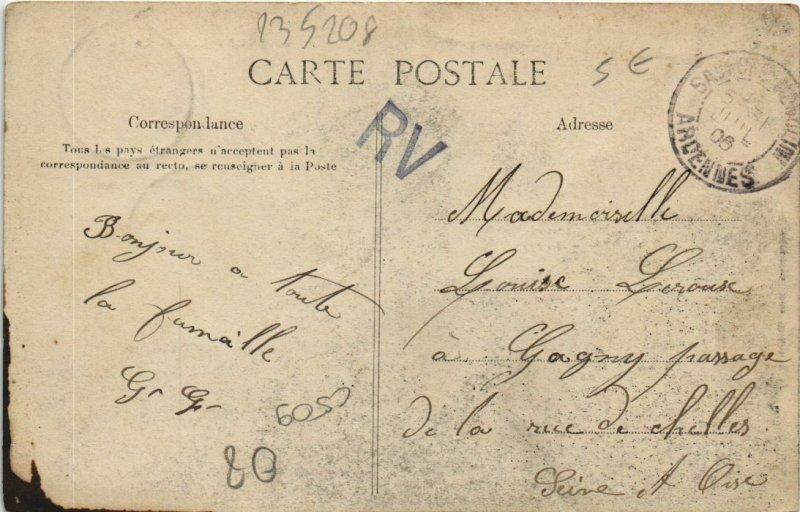 135208
CARTE POSTALE
5 €
Correspondance
Adresse
Tous les pays étrangers n'acceptent pas la
correspondance au recto, se renseigner à la Poste
RV
ARDENNES
06
Bonjour a toute
la famaille
G- G-
6050
80
Mademoiselle
Louise Lerouse
à Gagny passage
de la rue de chelles
Seine et Oise